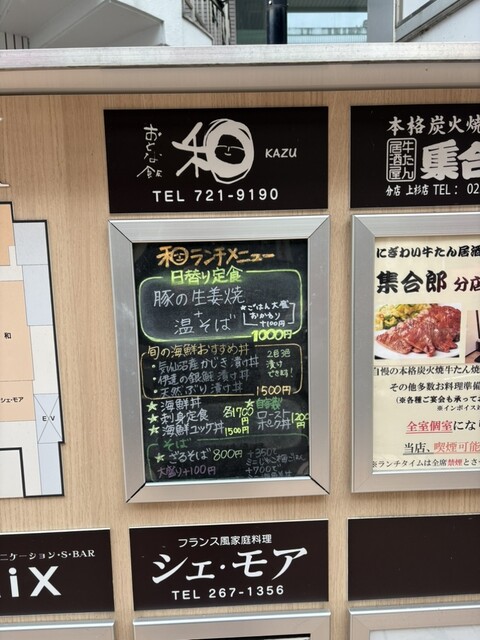 おとな飯
和
KAZU
TEL 721-9190
和ランチメニュー
日替り定食
豚の生姜焼
+
温そば
★ごはん大盛
おかわり
+100円
1000円
旬の海鮮おすすめ丼
・気仙沼産かじき漬け丼
・伊達の銀鮭漬け丼
・天然ぶり漬け丼
漬け
できます!
1500円
★海鮮丼
★刺身定食
各1700円
★海鮮ユッケ丼 1500円
★自家製
ロースト
ポーク丼
1200円
そば
★ざるそば 800円
大盛り+100円
+350円
+700円
本格炭火焼
牛たん
居酒屋
集合
分店 上杉店 TEL: 02
にぎわい牛たん居酒
集合郎 分店
自慢の本格炭火焼牛たん焼
その他多数お料理準備
(※各種ご宴会も承ってお
※インボイス
全室個室にな
当店、喫煙可能
※ランチタイムは全席禁煙とさ
和
シェ・モア
EV
ニケーション・S・BAR
iX
フランス風家庭料理
シェ・モア
TEL 267-1356